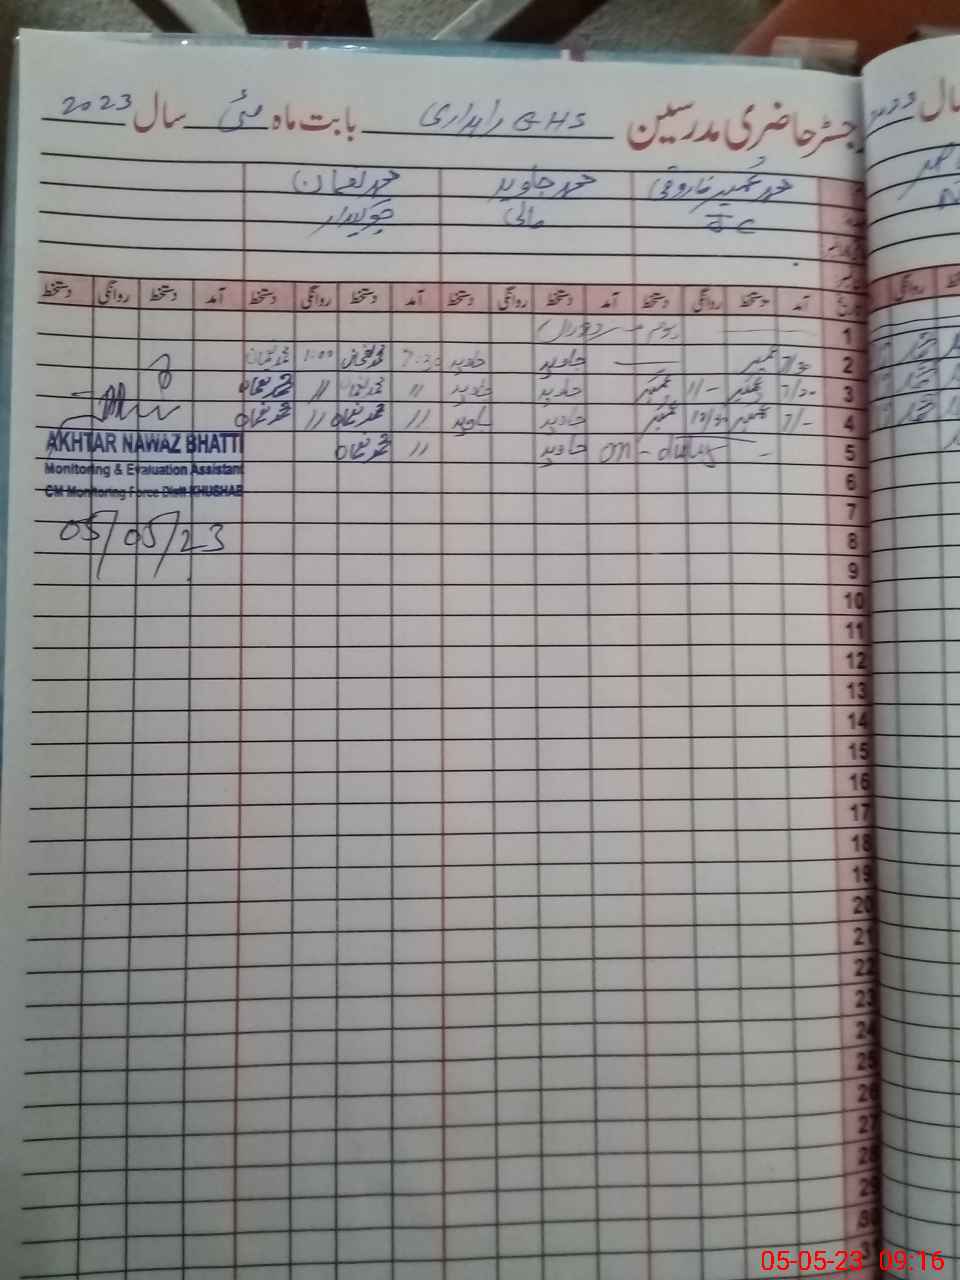 رجسٹر حاضری مدرسین GHS راہداری بابت ماہ مئی سال 2023
محمد عمیر فاروقی محمد جاوید محمد نعمان
J C مالی چوکیدار
تاریخ آمد دستخط روانگی دستخط آمد دستخط روانگی دستخط آمد دستخط روانگی دستخط آمد دستخط روانگی دستخط
1 یوم مزدوراں
2 7/30 عمیر جاوید جاوید 7:30 محمد نعمان 1:00 محمد نعمان
3 7/30 عمیر 11/- عمیر جاوید جاوید // محمد نعمان // محمد نعمان
4 7/- عمیر 12/30 عمیر جاوید جاوید // محمد نعمان // محمد نعمان
5 - on-duty جاوید // محمد نعمان
AKHTAR NAWAZ BHATTI
Monitoring & Evaluation Assistant
CM Monitoring Force Distt KHUSHAB
05/05/23
6
7
8
9
10
11
12
13
14
15
16
17
18
19
20
21
22
23
24
25
26
27
28
29
30
سال 2023
05-05-23 09:16